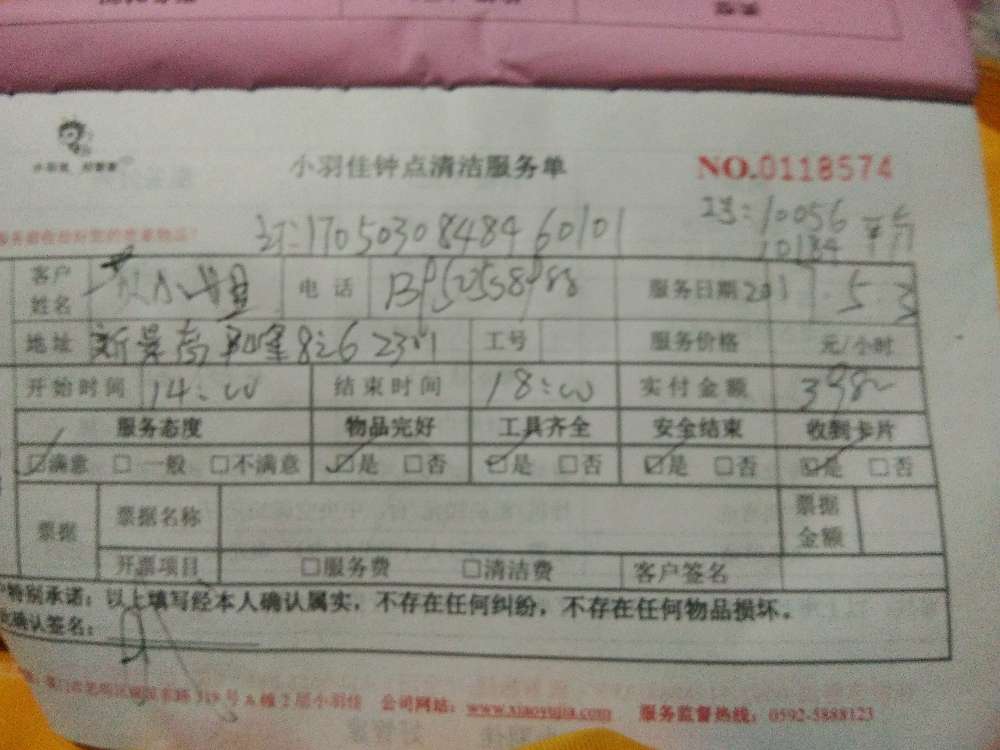 小羽佳钟点清洁服务单 NO.0118574
订:1705030848460101 工号:10056
10184
客户姓名 电话 服务日期 2017.5.3
地址 新景 8之6 2301 工号 服务价格 元/小时
开始时间 14:00 结束时间 18:00 实付金额 398
服务态度 物品完好 工具齐全 安全结束 收到卡片
☑满意 □一般 □不满意 ☑是 □否 ☑是 □否 ☑是 □否 ☑是 □否
票据 票据名称 票据金额
开票项目 □服务费 □清洁费 客户签名
特别承诺：以上填写经本人确认属实，不存在任何纠纷，不存在任何物品损坏。
确认签名：
319号A幢2层小羽佳 公司网站：www.xiaoyujia.com 服务监督热线：0592-5888123